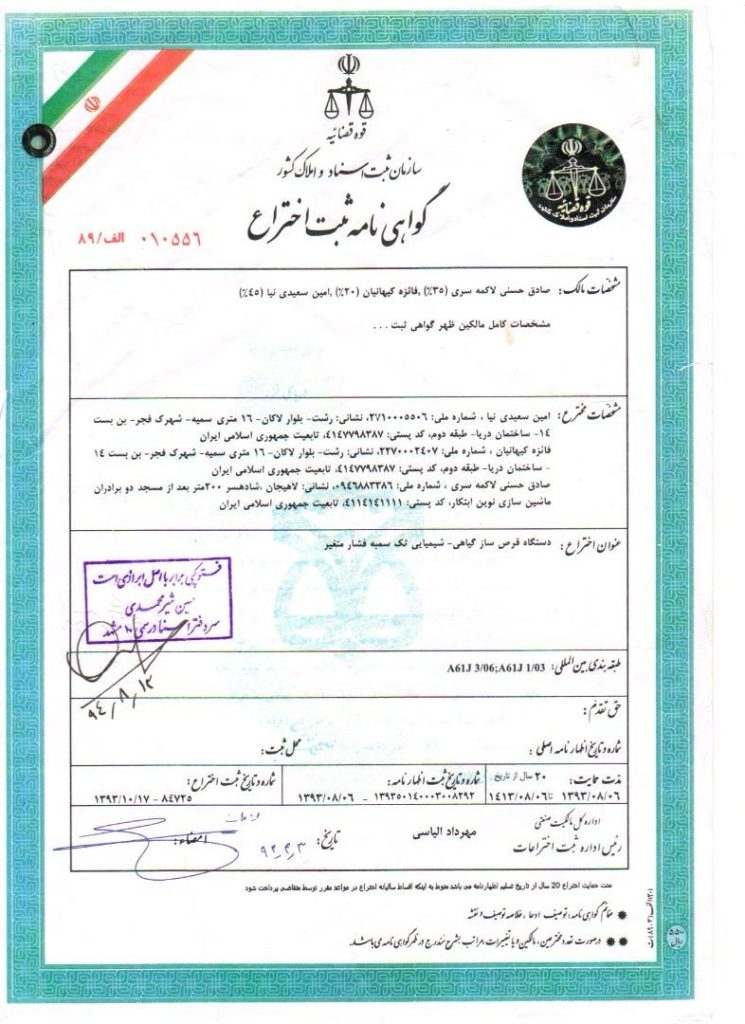 قوه قضائیه
سازمان ثبت اسناد و املاک کشور
گواهی نامه ثبت اختراع
قوه قضائیه
سازمان ثبت اسناد و املاک کشور
۰۱۰۵۵۶ الف/۸۹
مشخصات مالک: صادق حسنی لاکمه سری (۳۵%) ,فائزه کیهانیان (۲۰%) ,امین سعیدی نیا (۴۵%)
مشخصات کامل مالکین ظهر گواهی ثبت . . .
مشخصات مخترع: امین سعیدی نیا ، شماره ملی: ۲۷۱۰۰۰۵۵۰۶، نشانی: رشت- بلوار لاکان- ۱۶ متری سمیه- شهرک فجر- بن بست
۱۴- ساختمان دریا- طبقه دوم، کد پستی: ۴۱۴۷۷۹۸۳۸۷، تابعیت جمهوری اسلامی ایران
فائزه کیهانیان ، شماره ملی: ۲۲۷۰۰۰۲۴۰۷، نشانی: رشت- بلوار لاکان- ۱۶ متری سمیه- شهرک فجر- بن بست ۱۴
- ساختمان دریا- طبقه دوم، کد پستی: ۴۱۴۷۷۹۸۳۸۷، تابعیت جمهوری اسلامی ایران
صادق حسنی لاکمه سری ، شماره ملی: ۰۹۴۶۸۸۳۳۸۶، نشانی: لاهیجان ،شادهسر ۲۰۰متر بعد از مسجد دو برادران
ماشین سازی نوین ابتکار، کد پستی: ۴۱۱۴۱۴۱۱۱۱، تابعیت جمهوری اسلامی ایران
عنوان اختراع : دستگاه قرص ساز گیاهی- شیمیایی تک سمبه فشار متغیر
فتوکپی برابر با اصل ابرازی است
حسین شیرمحمدی
سردفتر اسناد رسمی ۱۰ مشهد
۹۴/۸/۱۲
طبقه بندی بین المللی: A61J 3/06;A61J 1/03
حق تقدم :
شماره و تاریخ اظهارنامه اصلی : محل ثبت :
مدت حمایت: ۲۰ سال از تاریخ شماره و تاریخ ثبت اظهارنامه: شماره و تاریخ ثبت اختراع :
۱۳۹۳/۰۸/۰۶ تا ۱۴۱۳/۰۸/۰۶ ۱۳۹۳۵۰۱۴۰۰۰۳۰۰۸۲۹۲ - ۱۳۹۳/۰۸/۰۶ ۸۴۷۲۵ - ۱۳۹۳/۱۰/۱۷
اداره کل مالکیت صنعتی
رئیس اداره ثبت اختراعات مهرداد الیاسی تاریخ: امضاء:
مدت حمایت اختراع 20 سال از تاریخ تسلیم اظهارنامه می باشد منوط به اینکه اقساط سالیانه اختراع در مواعد مقرر توسط متقاضی پرداخت شود
ضمائم گواهی نامه: توصیف ، ادعا ، خلاصه توصیف و نقشه
در صورت تعدد مخترعین، مالکین و یا تغییرات، مراتب بشرح مندرج در ظهر گواهی نامه می باشد.
۵۵۰ ریال